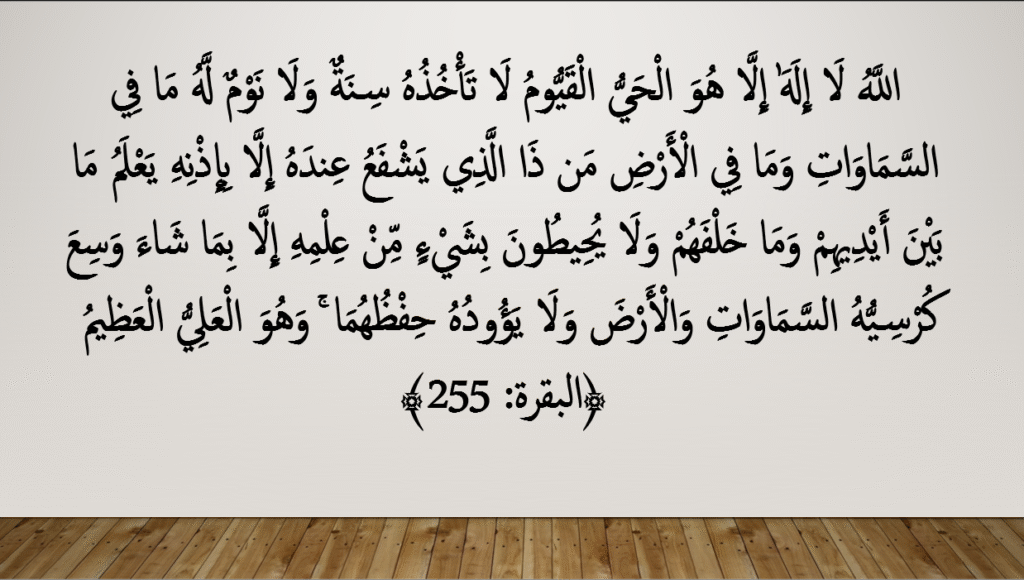 اللَّهُ لَا إِلَهَ إِلَّا هُوَ الْحَيُّ الْقَيُّومُ لَا تَأْخُذُهُ سِنَةٌ وَلَا نَوْمٌ لَّهُ مَا فِي
السَّمَاوَاتِ وَمَا فِي الْأَرْضِ مَن ذَا الَّذِي يَشْفَعُ عِندَهُ إِلَّا بِإِذْنِهِ يَعْلَمُ مَا
بَيْنَ أَيْدِيهِمْ وَمَا خَلْفَهُمْ وَلَا يُحِيطُونَ بِشَيْءٍ مِّنْ عِلْمِهِ إِلَّا بِمَا شَاءَ وَسِعَ
كُرْسِيُّهُ السَّمَاوَاتِ وَالْأَرْضَ وَلَا يَؤُودُهُ حِفْظُهُمَا ۚ وَهُوَ الْعَلِيُّ الْعَظِيمُ
﴿البقرة: 255﴾